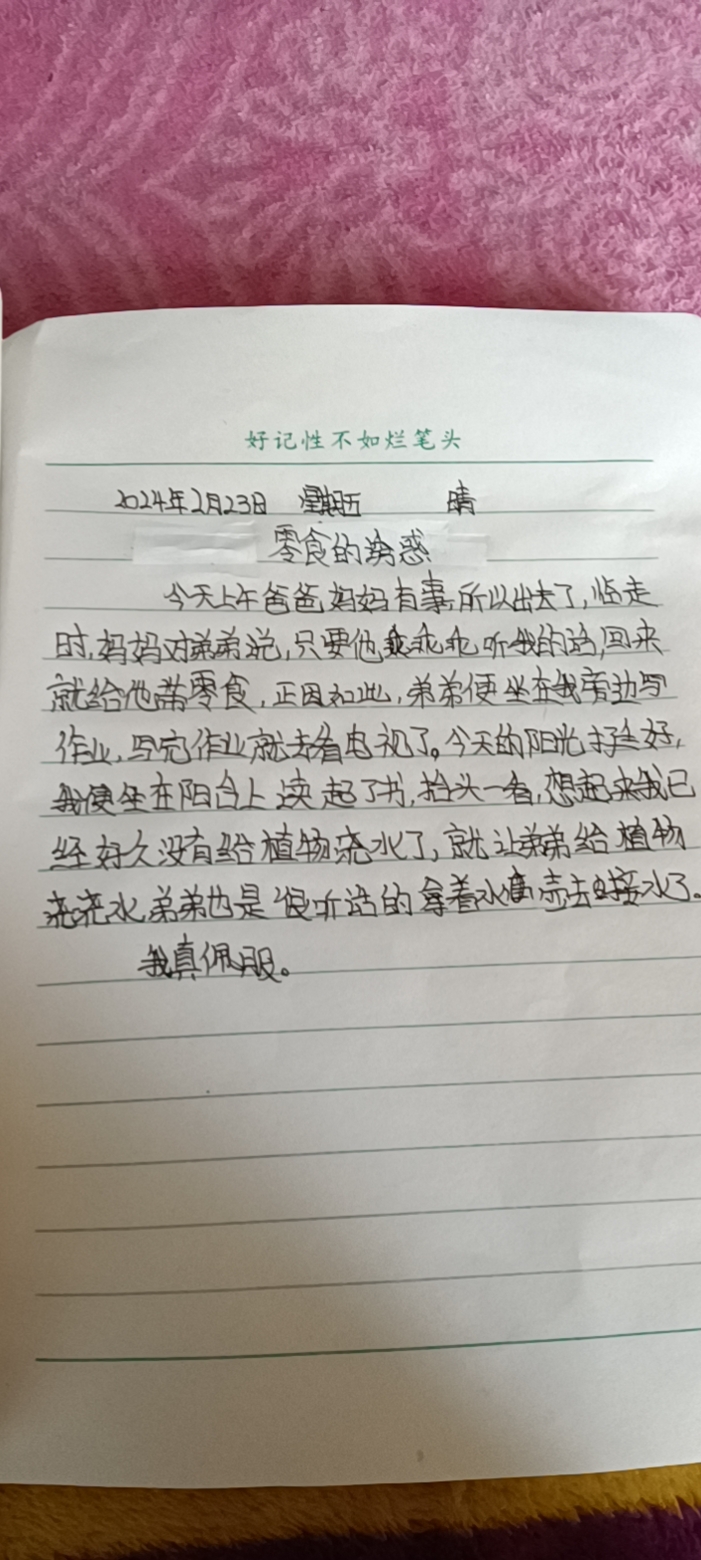 好记性不如烂笔头
2024年2月23日 星期五 晴
零食的诱惑
今天上午爸爸妈妈有事,所以出去了,临走
时,妈妈对弟弟说,只要他乖乖听我的话,回来
就给他带零食,正因如此,弟弟便坐在我旁边写
作业,写完作业就去看电视了。今天的阳光挺好,
我便坐在阳台上读起了书,抬头一看,想起来我已
经好久没有给植物浇水了,就让弟弟给植物
浇浇水,弟弟也是很听话的拿着水壶去接水了。
我真佩服。